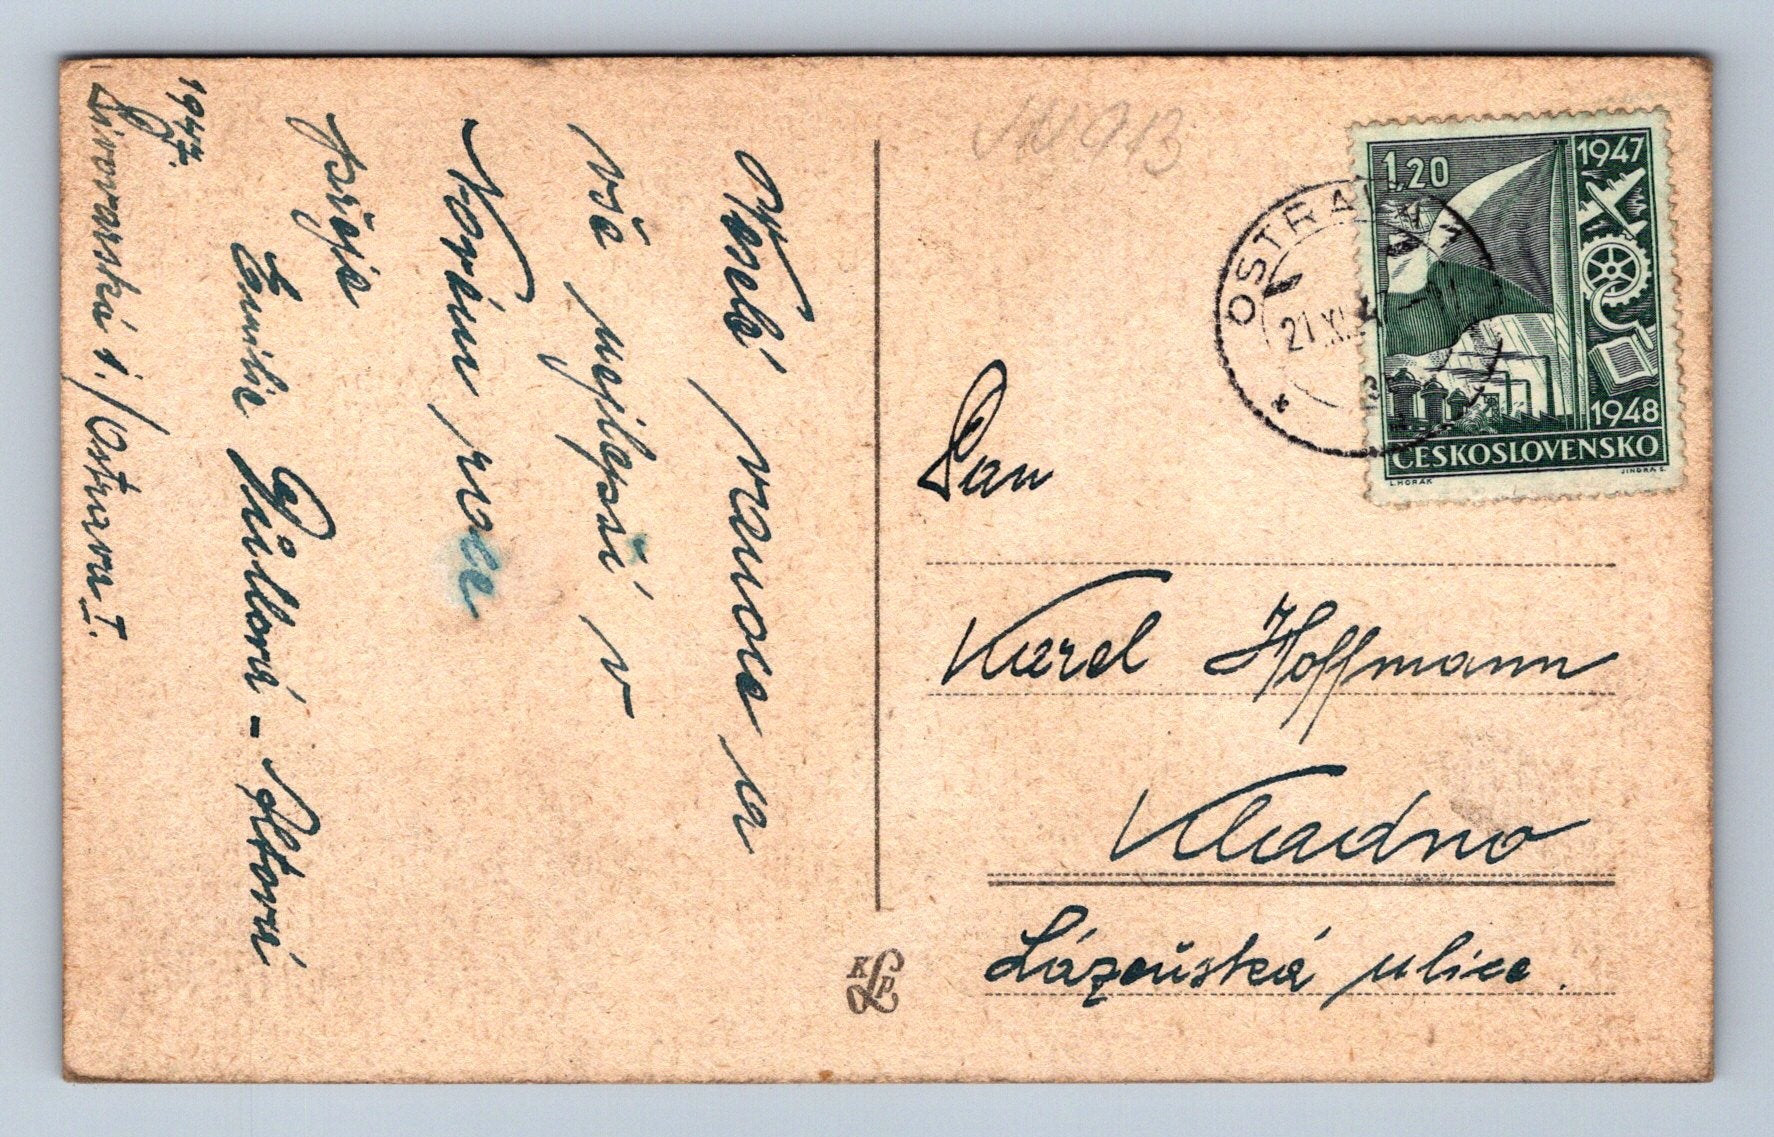 Veselé vánoce a
vše nejlepší v
Novém roce
přeje
Emilie
1947.
Ostrava I.
1,20
1947
1948
ČESKOSLOVENSKO
L. HORÁK
JINDRA S.
OSTRAVA 1
21.XII.47
Pan
Karel Hoffmann
Kladno
Lázeňská ulice.
K L P